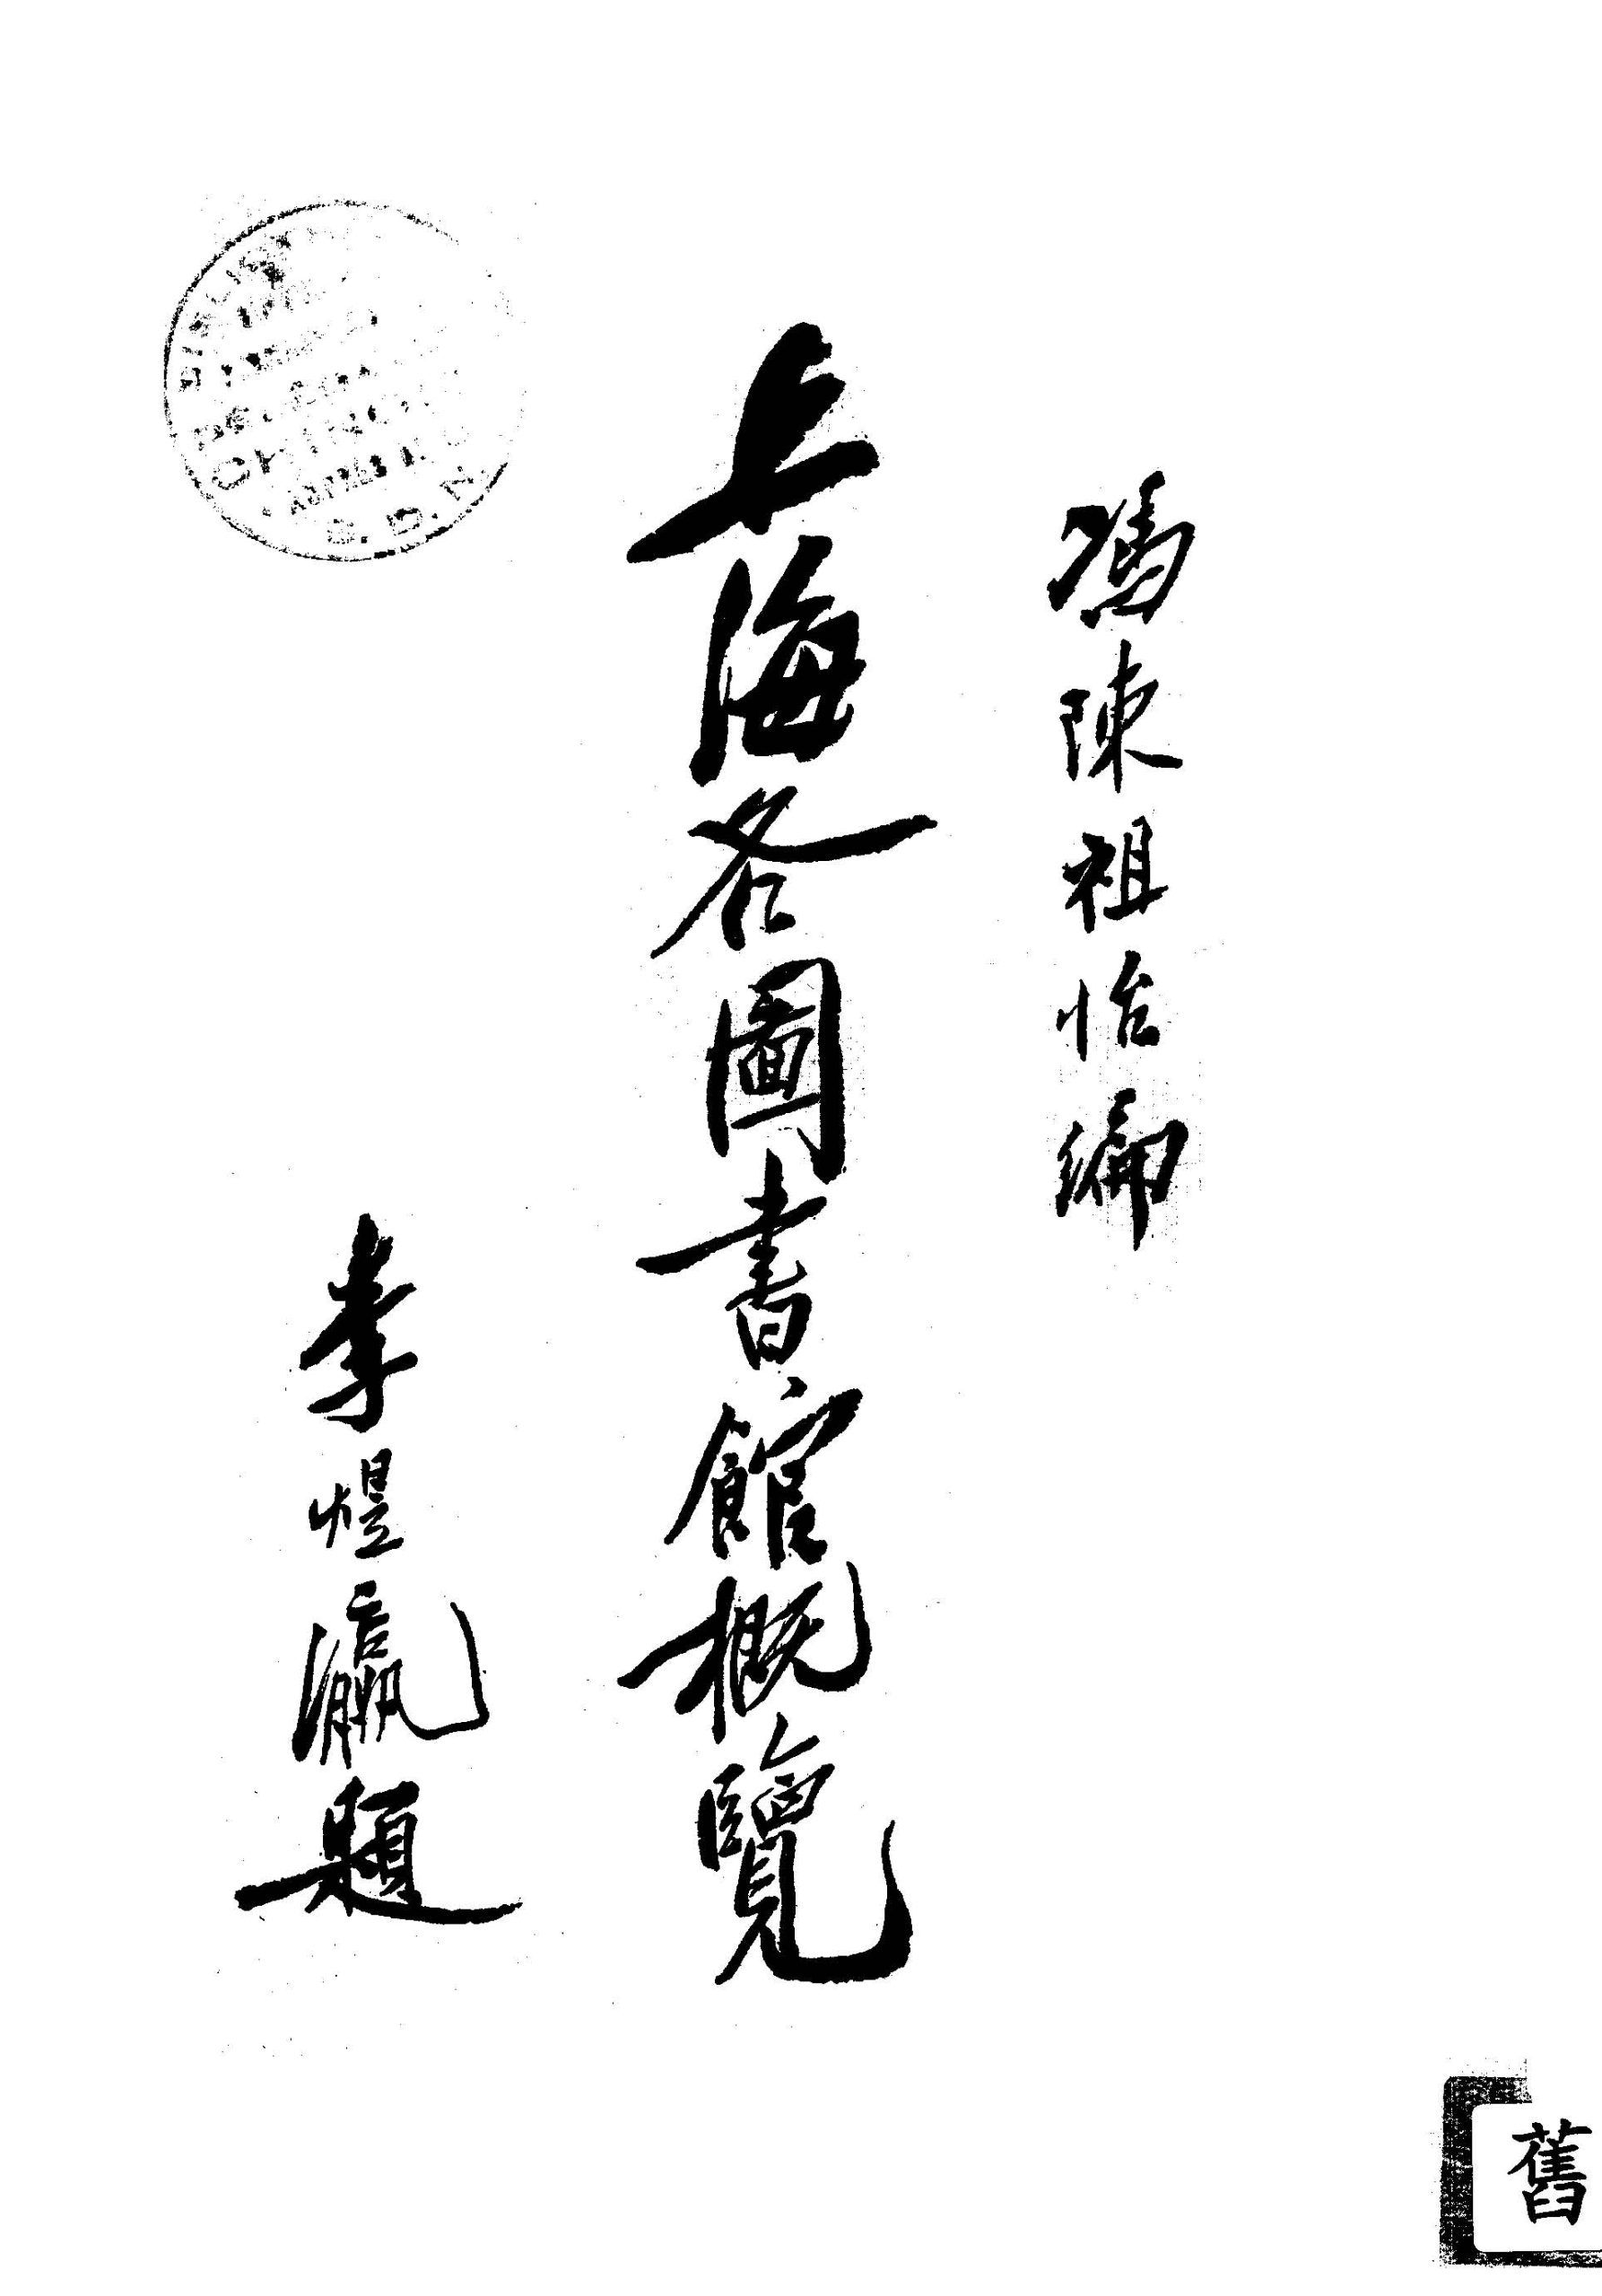 馮陳祖怡編
上海各圖書館概覽
李煜瀛題
S. D. N.
舊